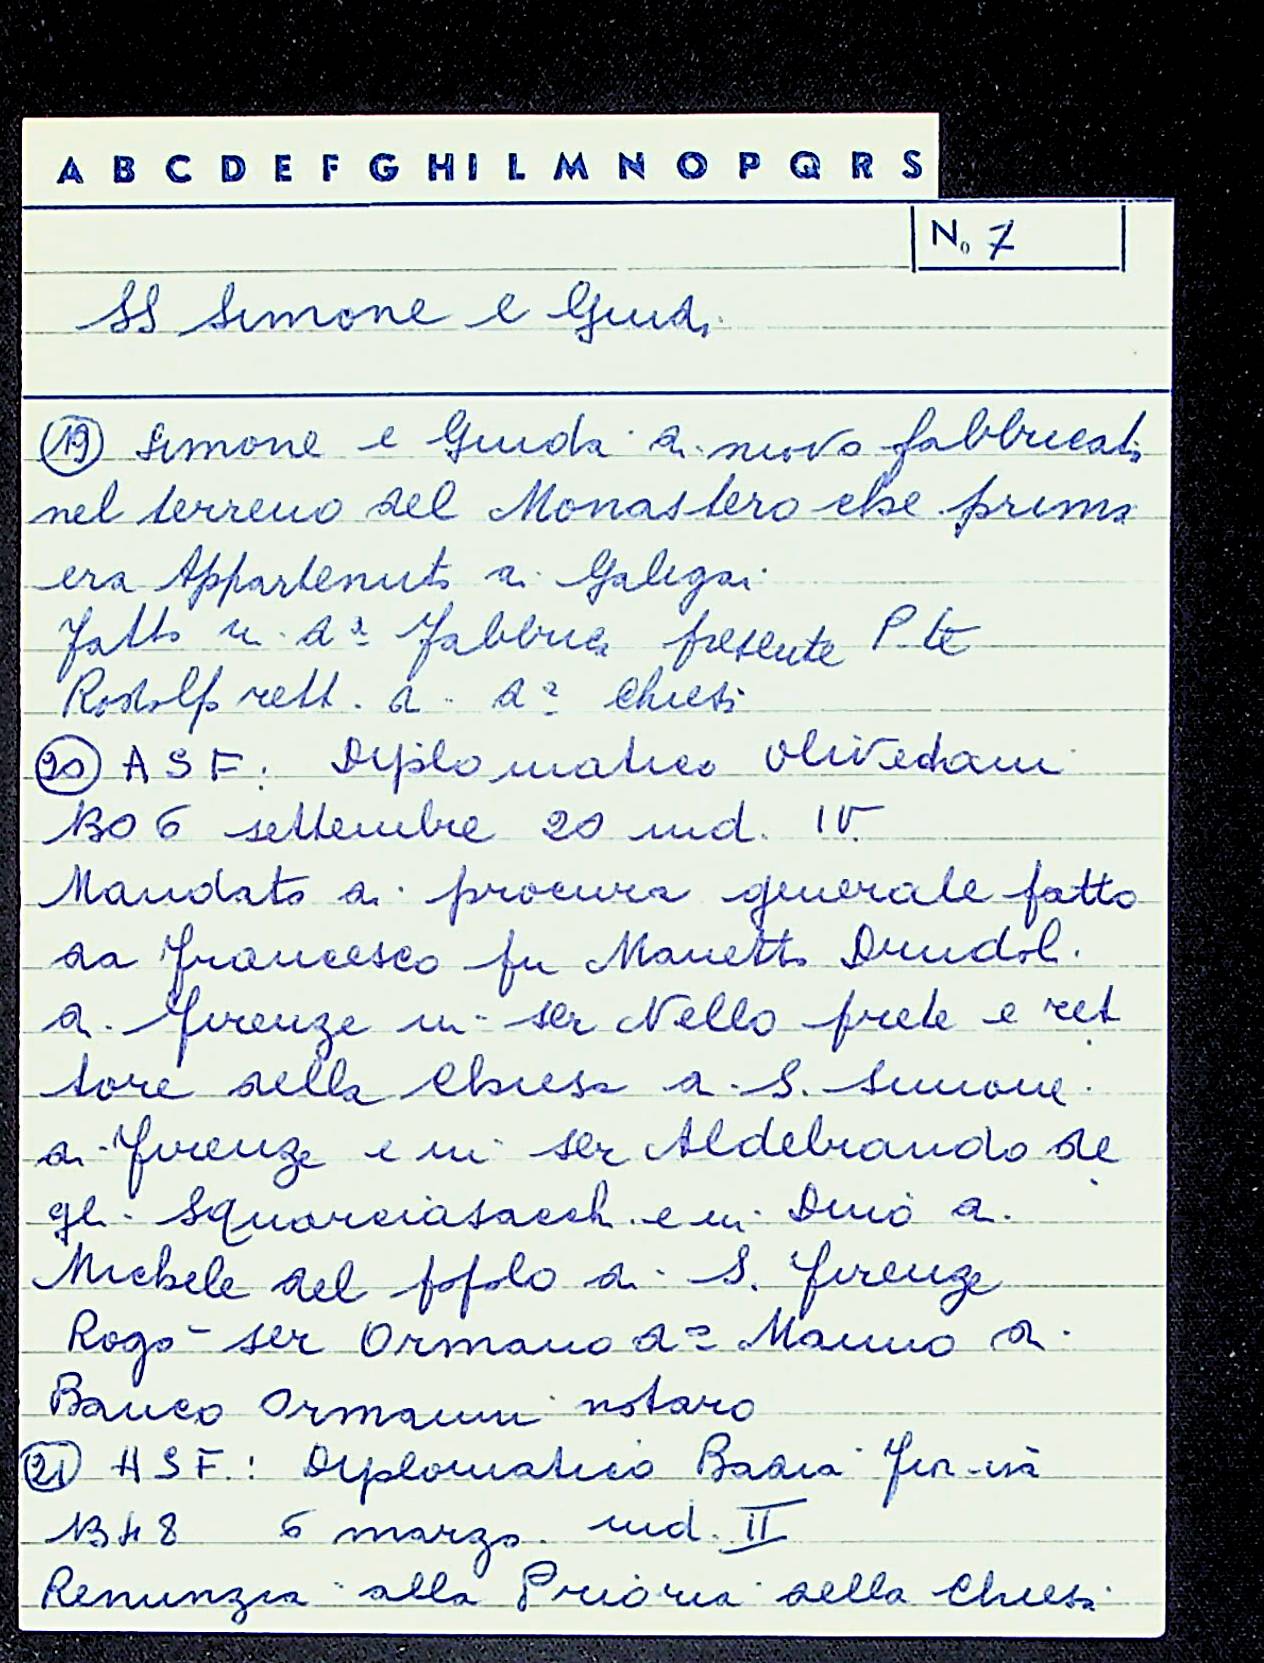 A B C D E F G H I L M N O P Q R S
No 7
SS Simone e Giuda
(19) Simone e Giuda di nuovo fabbricata
nel terreno del Monastero che prima
era Appartenuto ai Galigai
Fatto in da Fabbrica presente Pte
Rodolfo rett. di da Chiesa
(20) ASF: Diplomatico Olivetani
1306 settembre 20 ind. IV
Mandato di procura generale fatto
da Francesco fu Manetto
di Firenze in ser Nello prete e ret
tore della Chiesa di S. Simone
di Firenze e in ser Aldebrando de
gli Squarciasacchi e in Dino di
Michele del popolo di S. Firenze
Rogò ser Ormano do Manno di
Banco Ormanni notaro
(21) ASF.: Diplomatico Badia Fior-na
1348 6 marzo ind. II
Renunzia alla Prioria della Chiesa